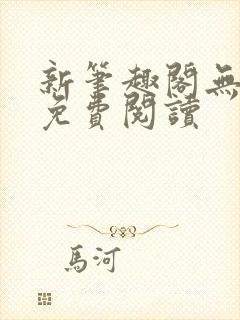 新筆趣閣無
免費閱讀
馬河